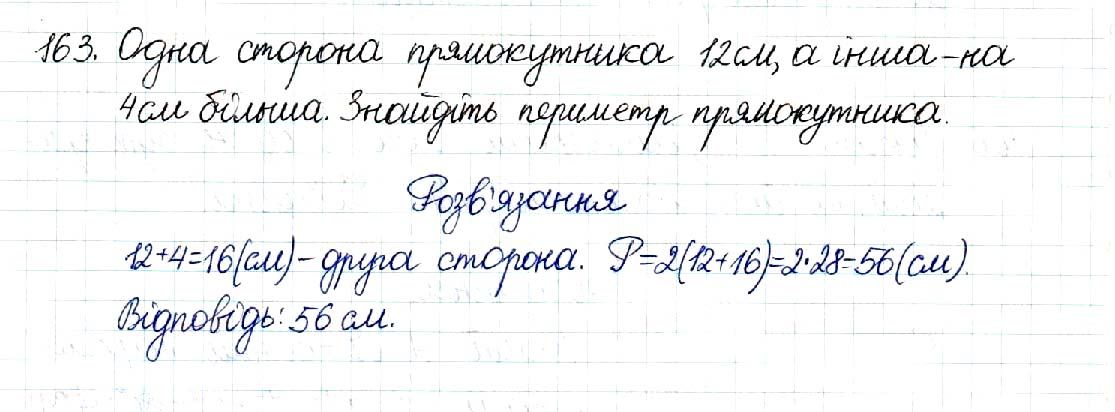 163. Одна сторона прямокутника 12см, а інша - на
4см більша. Знайдіть периметр прямокутника.
Розв'язання
12+4=16(см) - друга сторона. P=2(12+16)=2·28=56(см).
Відповідь: 56 см.